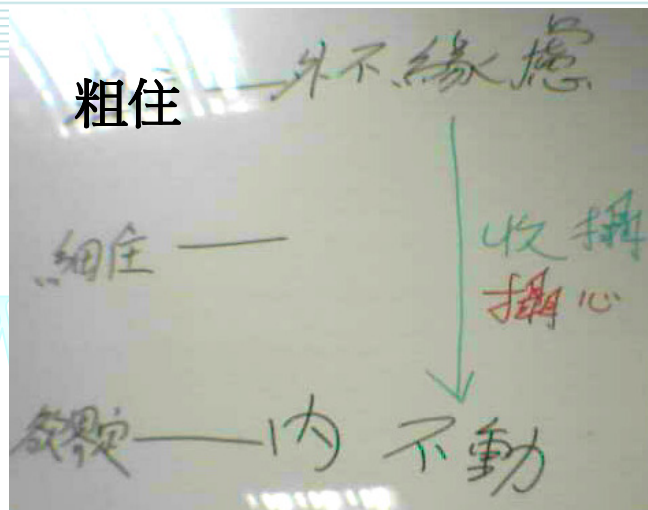 粗住 — 外不緣慮
細住 —
收攝
攝心
欲界定 — 內 不動